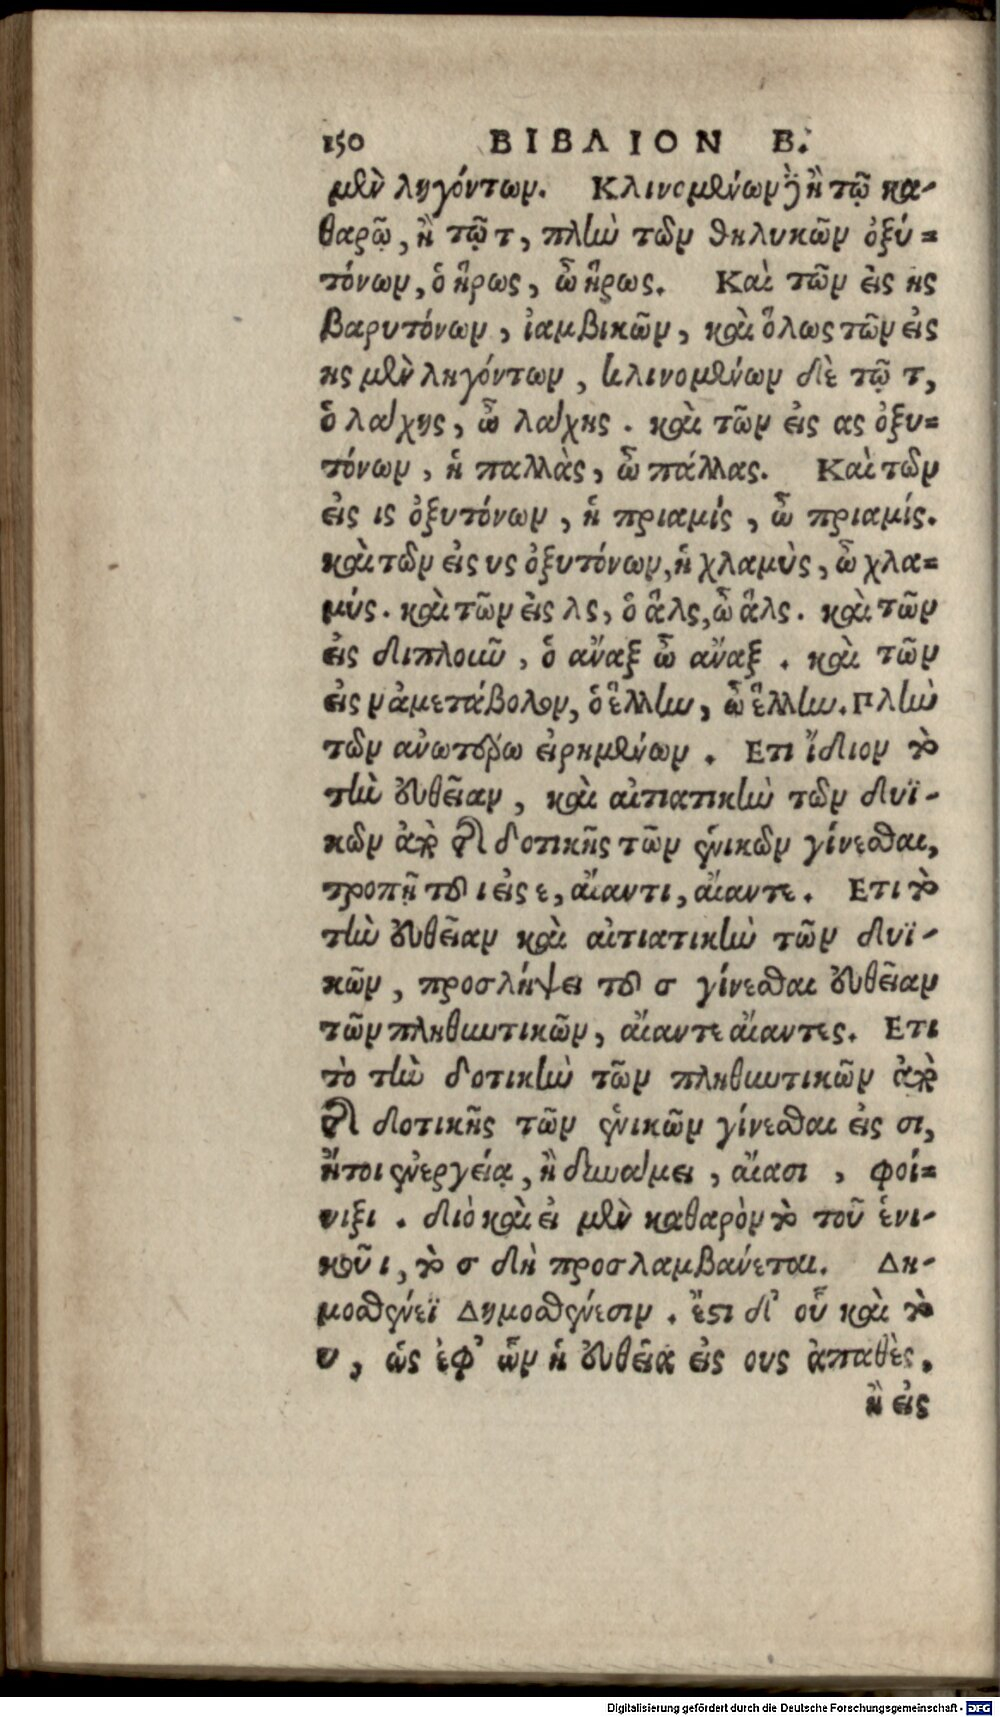 150 ΒΙΒΛΙΟΝ Β.
μὲν ληγόντων. Κλινομένων δὲ ἢ τῷ κα-
θαρῷ, ἢ τῷ τ, πλὴν τῶν θηλυκῶν ὀξύ=
τόνων, ὁ ἥρως, ὦ ἥρως. Καὶ τῶν εἰς ης
βαρυτόνων, ἰαμβικῶν, καὶ ὅλως τῶν εἰς
ης μὲν ληγόντων, κλινομένων δὲ τῷ τ,
ὁ λάχης, ὦ λάχης. καὶ τῶν εἰς ας ὀξυ=
τόνων, ἡ παλλὰς, ὦ πάλλας. Καὶ τῶν
εἰς ις ὀξυτόνων, ἡ πριαμίς, ὦ πριαμίς.
καὶ τῶν εἰς υς ὀξυτόνων, ἡ χλαμὺς, ὦ χλα=
μύς. καὶ τῶν εἰς λς, ὁ ἅλς, ὦ ἅλς. καὶ τῶν
εἰς διπλοῦν, ὁ ἄναξ ὦ ἄναξ. καὶ τῶν
εἰς ν ἀμετάβολον, ὁ ἕλλην, ὦ ἕλλην. Πλὴν
τῶν ἀνωτέρω εἰρημένων. Ετι ἴδιον τὸ
τὴν εὐθεῖαν, καὶ αἰτιατικὴν τῶν δυϊ-
κῶν ἀπὸ τῆς δοτικῆς τῶν ἑνικῶν γίνεσθαι,
τροπῇ τοῦ ι εἰς ε, αἴαντι, αἴαντε. Ετι τὸ
τὴν εὐθεῖαν καὶ αἰτιατικὴν τῶν δυϊ-
κῶν, προσλήψει τοῦ σ γίνεσθαι εὐθεῖαν
τῶν πληθυντικῶν, αἴαντε αἴαντες. Ετι
τὸ τὴν δοτικὴν τῶν πληθυντικῶν ἀπὸ
τῆς δοτικῆς τῶν ἑνικῶν γίνεσθαι εἰς σι,
ἤτοι ἐνεργείᾳ, ἢ δυνάμει, αἴασι, φοί=
νιξι. διὸ καὶ εἰ μὲν καθαρὸν τὸ τοῦ ἑνι-
κοῦ ι, τὸ σ δὴ προσλαμβάνεται. Δη-
μοσθένεϊ Δημοσθένεσιν. ἔστι δ' οὗ καὶ τὸ
υ, ὡς ἐφ' ὧν ἡ εὐθεῖα εἰς ους ἀπαθὲς.
ἢ εἰς
Digitalisierung gefördert durch die Deutsche Forschungsgemeinschaft - DFG